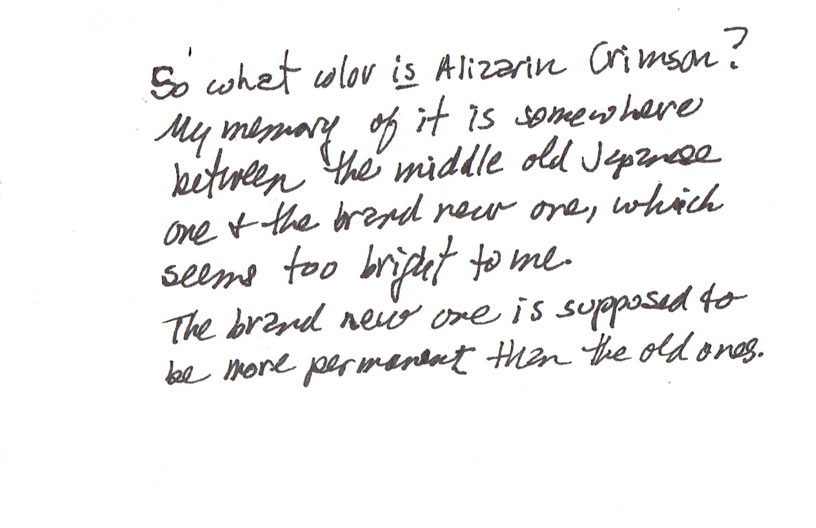 So what color is Alizarin Crimson?
My memory of it is somewhere
between the middle old Japanese
one & the brand new one, which
seems too bright to me.
The brand new one is supposed to
be more permanent than the old ones.